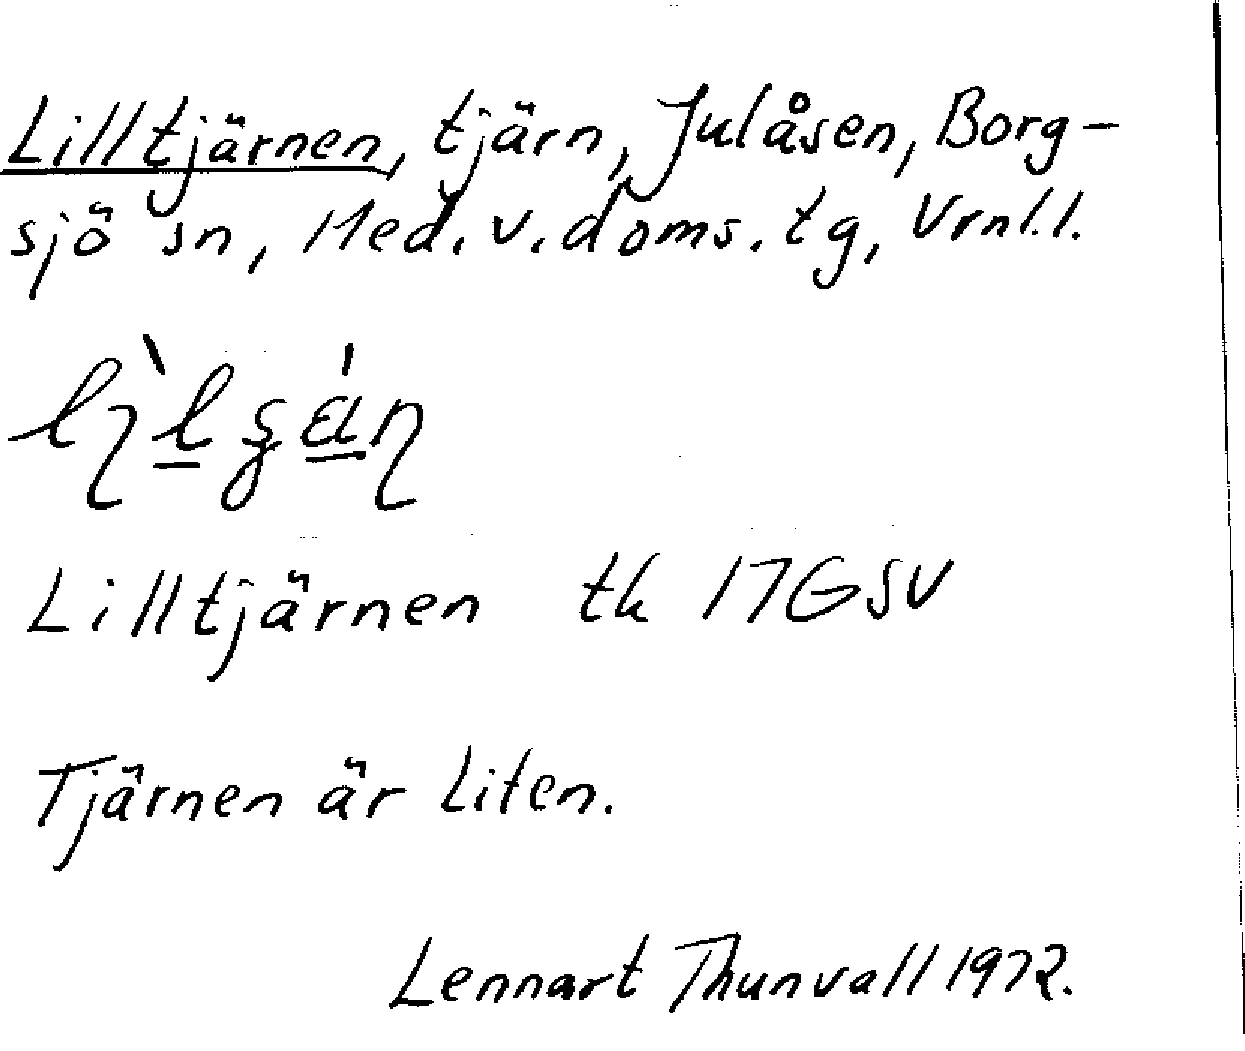 Lilltjärnen, tjärn, Julåsen, Borg-
sjö sn, Med. v. doms. tg, Vrnl. l.
Lilltjärnen tk 17GSV
Tjärnen är liten.
Lennart Thunvall 1972.